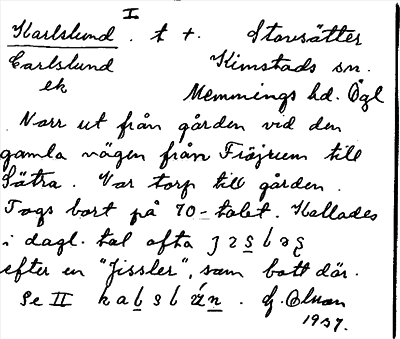 I
Karlslund. t +. Storsätter
Carlslund Kimstads sn.
ek Memmings hd. Ögl
Norr ut från gården vid den
gamla vägen från Fröjrum till
Sätra. Var torp till gården.
Togs bort på 70-talet. Kallades
i dagl. tal ofta
efter en "Jissler", som bott där.
Se II
1937.